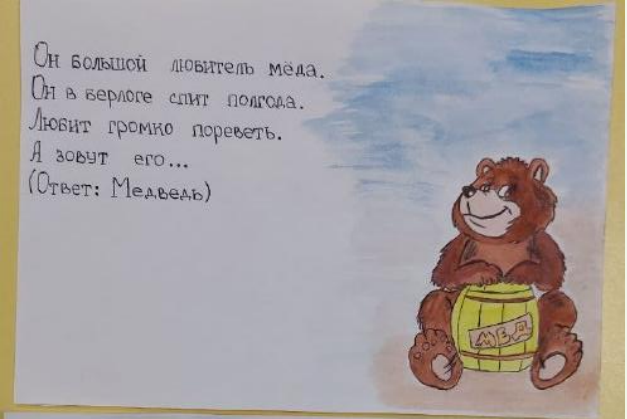 Он большой любитель мёда.
Он в берлоге спит полгода.
Любит громко пореветь.
А зовут его...
(Ответ: Медведь)
МЕД